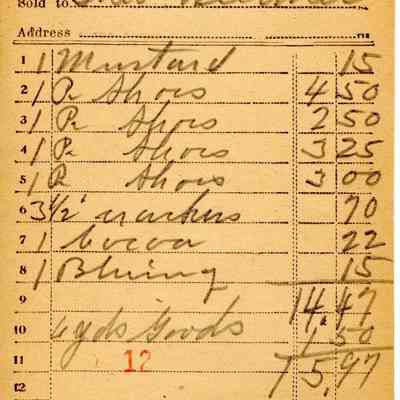 Sold to
Address
1 1 Mustard 15
2 1 Pr Shoes 4 50
3 1 Pr Shoes 2 50
4 1 Pr Shoes 3 25
5 1 Pr Shoes 3 00
6 3½ crackers 70
7 1 Cocoa 22
8 1 Bluing 15
9 14,47
10 6 yds Goods 1 50
11 12 15,97
12